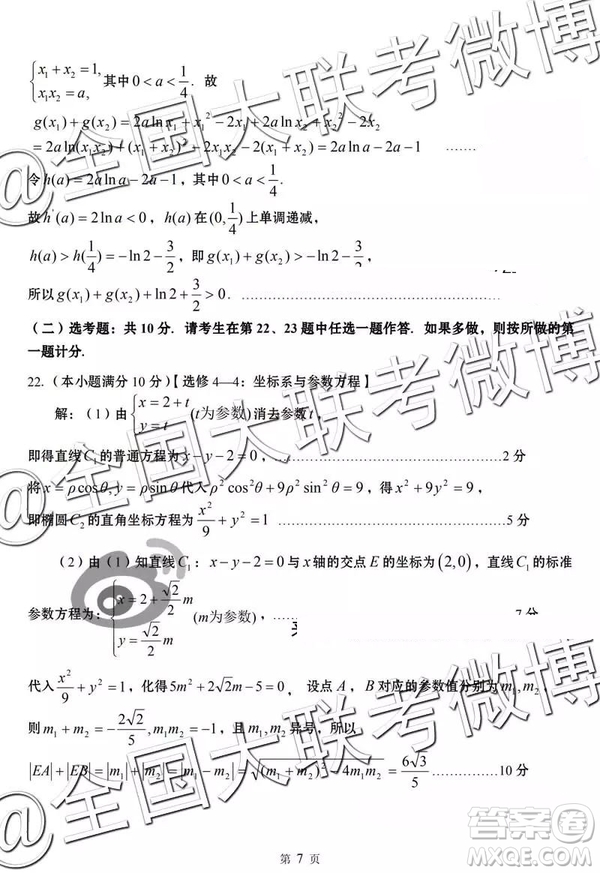 {x₁+x₂=1, x₁x₂=a, 其中0<a<1/4. 故
g(x₁)+g(x₂)=2a ln x₁+x₁²-2x₁+2a ln x₂+x₂²-2x₂
=2a ln(x₁x₂)+(x₁+x₂)²-2x₁x₂-2(x₁+x₂)=2a ln a-2a-1 .......
令h(a)=2a ln a-2a-1，其中0<a<1/4.
故h'(a)=2ln a<0，h(a)在(0,1/4)上单调递减，
h(a)>h(1/4)=-ln2-3/2，即g(x₁)+g(x₂)>-ln2-3/2，
所以g(x₁)+g(x₂)+ln2+3/2>0.
（二）选考题：共10分．请考生在第22、23题中任选一题作答．如果多做，则按所做的第
一题计分.
22.（本小题满分10分）【选修4—4：坐标系与参数方程】
解：（1）由{x=2+t, y=t (t为参数)消去参数t，
即得直线C₁的普通方程为x-y-2=0，……2分
将x=ρcosθ,y=ρsinθ代入ρ²cos²θ+9ρ²sin²θ=9，得x²+9y²=9，
即椭圆C₂的直角坐标方程为x²/9+y²=1 ……5分
（2）由（1）知直线C₁：x-y-2=0与x轴的交点E的坐标为(2,0)，直线C₁的标准
参数方程为：{x=2+(√2/2)m, y=(√2/2)m (m为参数) 7分
代入x²/9+y²=1，化得5m²+2√2m-5=0，设点A，B对应的参数值分别为m₁,m₂，
则m₁+m₂=-2√2/5,m₁m₂=-1，且m₁,m₂异号，所以
|EA|+|EB|=|m₁|+|m₂|=|m₁-m₂|=√((m₁+m₂)²-4m₁m₂)=6√3/5 ……10分
第 7 页
@全国大联考微博
@全国大联考微博
@全国大联考微博
答案圈
MXQE.COM